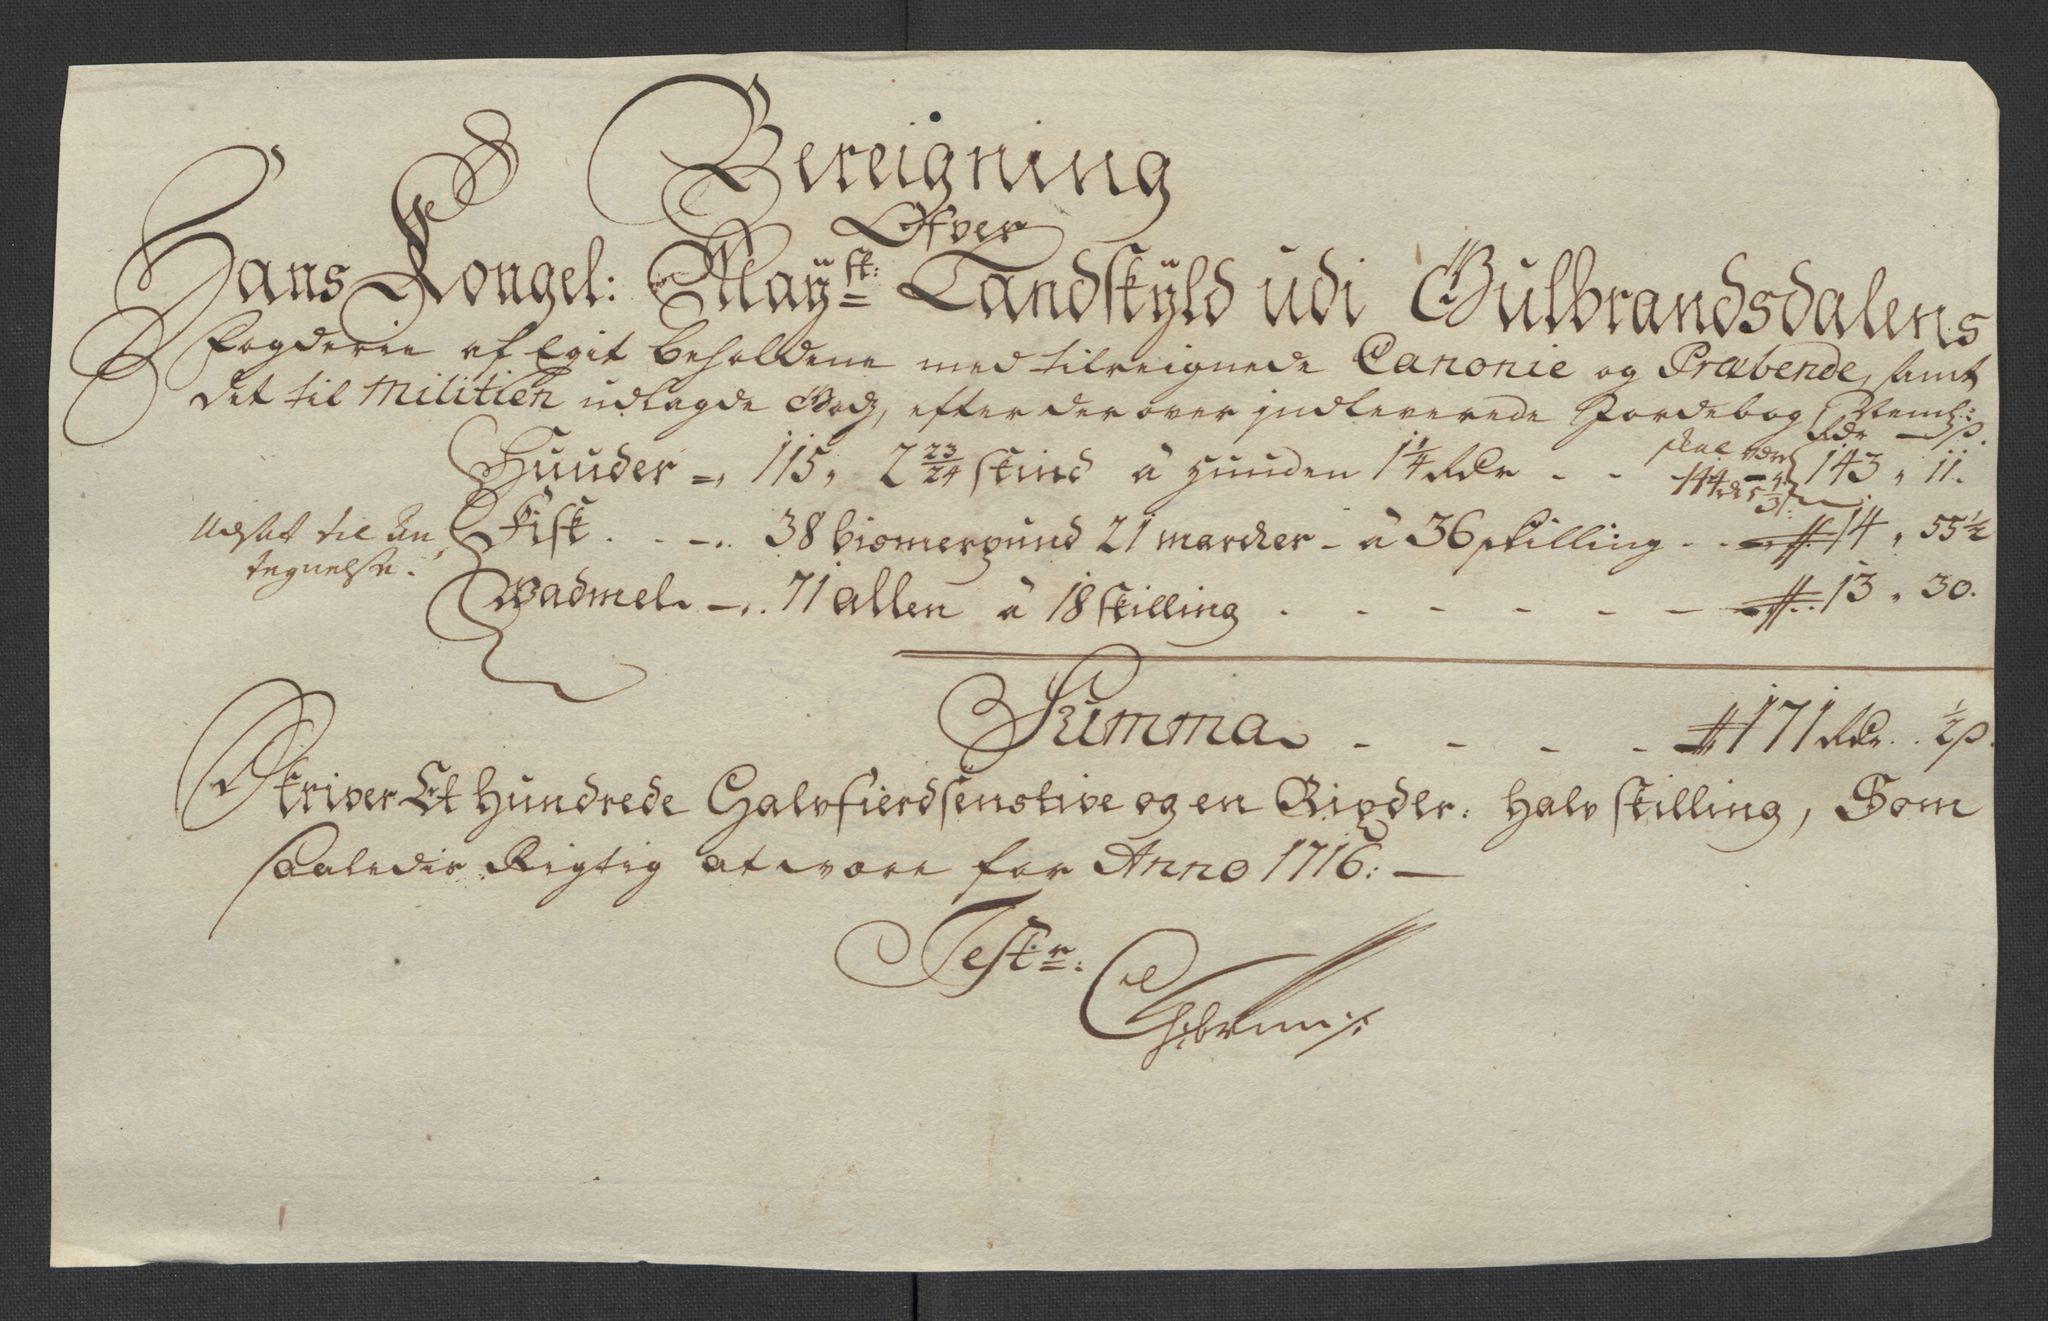 Bereigning
Ofver
Hans Kongel: Mayst: Landskyld udi Gulbrandsdalens
Fogderie af Egit beholdene med tilreignede Canonie og Præbende, samt
det til Militien udlagde Godz, efter der over indleverede Jordebog Neml:
Rdr — ß.
Huuder 115, 2 23/24 skind à Huuden 1 1/4 Rdr - - 143 " 11.
skal være
144
Fisk . . - . 38 bismerpund 21 marcker - à 36 skilling . . 14 " 55 1/2
Udsat til An
tegnelse.
Wadmel - . 71 allen à 18 skilling . - - - - - 13 " 30.
Summa - - - - 171 Rdr. 1/2 ß.
Skriver Et Hundrede Halvfierdsenstive og en Rixder: Halv skilling, Som
saaledis Rigtig at være for Anno 1716: —
Testr: